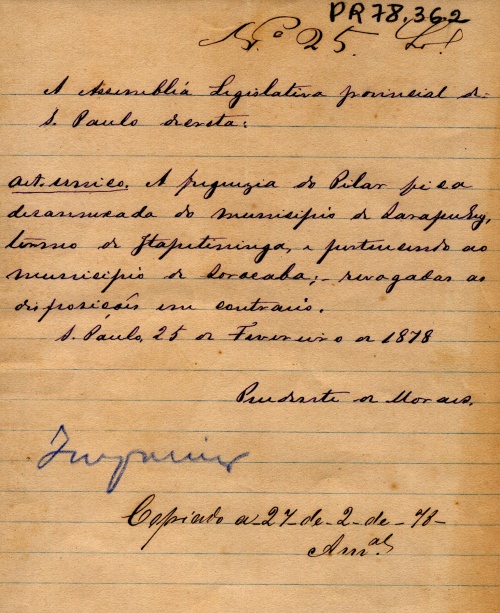 PR78.362
N.º 25.
A Assembléa Legislativa provincial de
S. Paulo decreta:
Art. unico. A freguezia do Pilar fica
desannexada do municipio de Sarapuhy,
termo de Itapetininga, e pertencendo ao
municipio de Sorocaba; revogadas as
disposições em contrario.
S. Paulo, 25 de Fevereiro de 1878
Prudente de Moraes.
Copiado a 27-de-2-de-78-